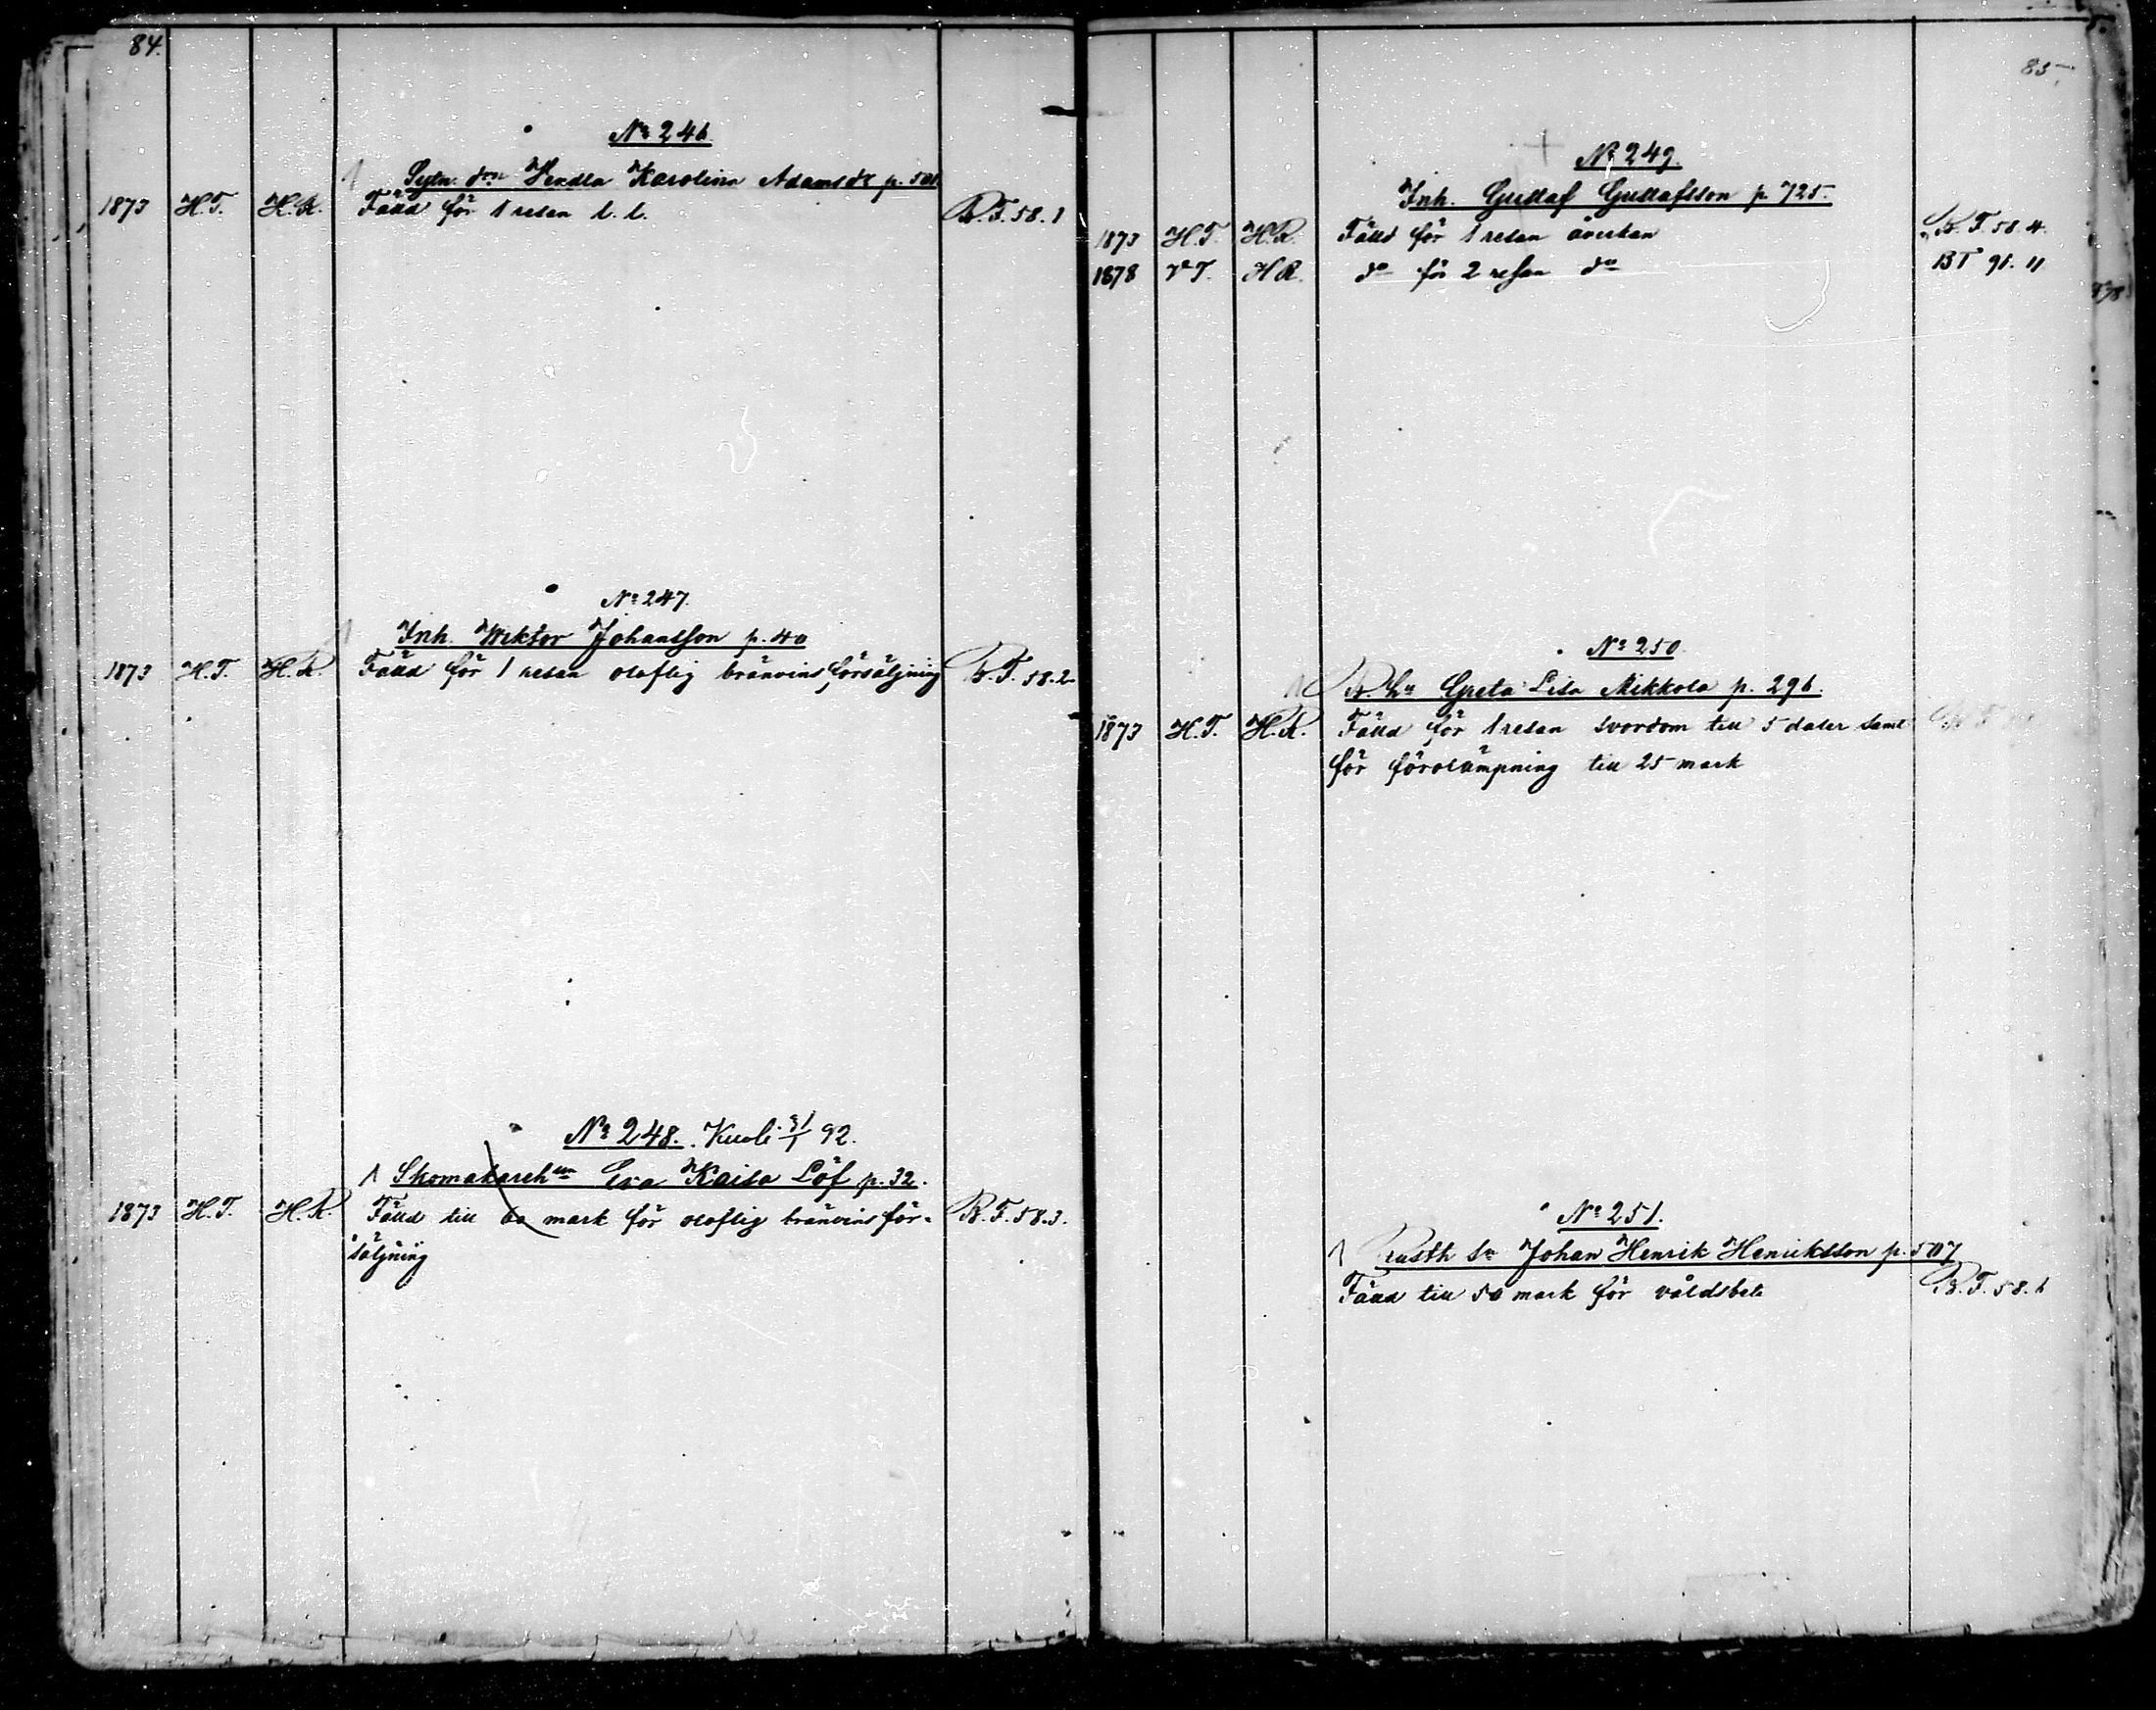 84.
No 246.
Sytn. drn Hendla Karolina Adamsdr p. 501
1873 H.T. H.R. Fälld för 1 resan l. l. B.T. 58.1
No 247.
Inh. Wiktor Johansson p. 40
1873 H.T. H.R. Fälld för 1 resan olaflig bränvins försäljning B.T. 58.2
No 248. Kuoli 31/1 92.
Skomakarehun Eva Kaisa Löf p. 32.
1873 H.T. H.R. Fälld till 60 mark för olaflig bränvins för- B.T. 58.3.
säljning
85.
No 249.
Inh. Gustaf Gustafsson p. 725.
1873 H.T. H.R. Fälld för 1 resan åverkan B.T. 58.4.
1878 V.T. H.R. do för 2 resan do BT 91. 11
No 250.
Greta Lisa Mikkola p. 296.
1873 H.T. H.R. Fälld för 1 resan svordom till 5 daler samt
för förolämpning till 25 mark
No 251.
Rusth sn Johan Henrik Henriksson p. 507
Fälld till 50 mark för våldsbete B.T. 58.6